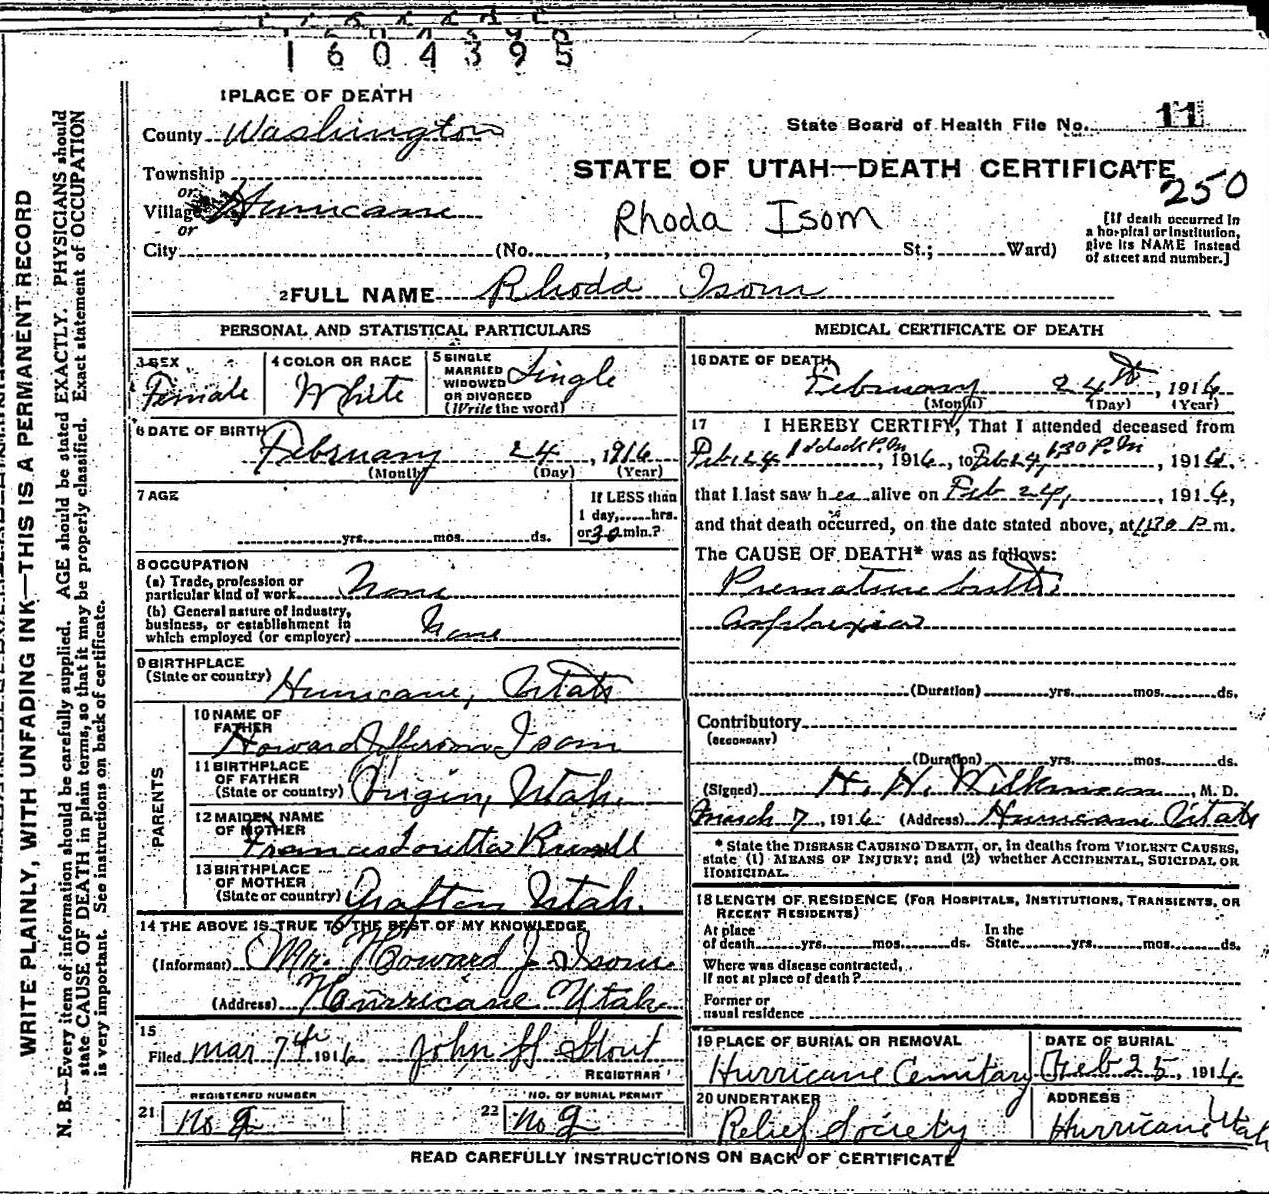 1604395
1 PLACE OF DEATH
County Washington
State Board of Health File No. 11
Township
or
Village Hurricane
or
City
STATE OF UTAH—DEATH CERTIFICATE
250
Rhoda Isom
(No. , St.; Ward)
[If death occurred in
a hospital or institution,
give its NAME instead
of street and number.]
2 FULL NAME Rhoda Isom
PERSONAL AND STATISTICAL PARTICULARS
3 SEX
Female
4 COLOR OR RACE
White
5 SINGLE
MARRIED
WIDOWED
OR DIVORCED
(Write the word)
Single
6 DATE OF BIRTH
February 24, 1916
(Month) (Day) (Year)
7 AGE
yrs. mos. ds.
If LESS than
1 day, hrs.
or 30 min.?
8 OCCUPATION
(a) Trade, profession or
particular kind of work None
(b) General nature of industry,
business, or establishment in
which employed (or employer) None
9 BIRTHPLACE
(State or country) Hurricane, Utah
PARENTS
10 NAME OF
FATHER
Howard Jefferson Isom
11 BIRTHPLACE
OF FATHER
(State or country) Virgin, Utah.
12 MAIDEN NAME
OF MOTHER
Frances Loretta Russell
13 BIRTHPLACE
OF MOTHER
(State or country) Grafton Utah.
14 THE ABOVE IS TRUE TO THE BEST OF MY KNOWLEDGE
(Informant) Mr. Howard J. Isom
(Address) Hurricane Utah
15
Filed Mar 7th 1916 John H Stout
REGISTRAR
REGISTERED NUMBER
21 No 9
NO. OF BURIAL PERMIT
22 No 9
MEDICAL CERTIFICATE OF DEATH
16 DATE OF DEATH
February 24th, 1916
(Month) (Day) (Year)
17 I HEREBY CERTIFY, That I attended deceased from
Feb. 24 1 o'clock P.M., 1916, to Feb 24, 1:30 P.M, 1916,
that I last saw her alive on Feb 24, 1916,
and that death occurred, on the date stated above, at 1:30 P.m.
The CAUSE OF DEATH* was as follows:
Premature birth.
Asphixia
(Duration) yrs. mos. ds.
Contributory
(SECONDARY)
(Duration) yrs. mos. ds.
(Signed) H. H. Wilkinson, M. D.
March 7, 1916 (Address) Hurricane Utah
* State the DISEASE CAUSING DEATH, or, in deaths from VIOLENT CAUSES,
state (1) MEANS OF INJURY; and (2) whether ACCIDENTAL, SUICIDAL OR
HOMICIDAL.
18 LENGTH OF RESIDENCE (FOR HOSPITALS, INSTITUTIONS, TRANSIENTS, OR
RECENT RESIDENTS)
At place
of death yrs. mos. ds.
In the
State yrs. mos. ds.
Where was disease contracted,
if not at place of death?
Former or
usual residence
19 PLACE OF BURIAL OR REMOVAL
Hurricane Cemitary
DATE OF BURIAL
Feb 25, 1916
20 UNDERTAKER
Relief Society
ADDRESS
Hurricane Utah
READ CAREFULLY INSTRUCTIONS ON BACK OF CERTIFICATE
WRITE PLAINLY, WITH UNFADING INK—THIS IS A PERMANENT RECORD
N. B.—Every item of information should be carefully supplied. AGE should be stated EXACTLY. PHYSICIANS should
state CAUSE OF DEATH in plain terms, so that it may be properly classified. Exact statement of OCCUPATION
is very important. See instructions on back of certificate.